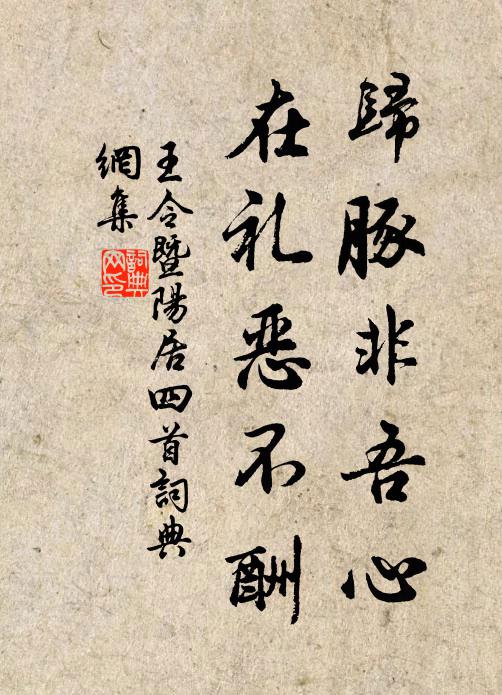 歸豚非吾心
在礼恶不酬
王令暨陽居四首詞典
網集
詞典網印